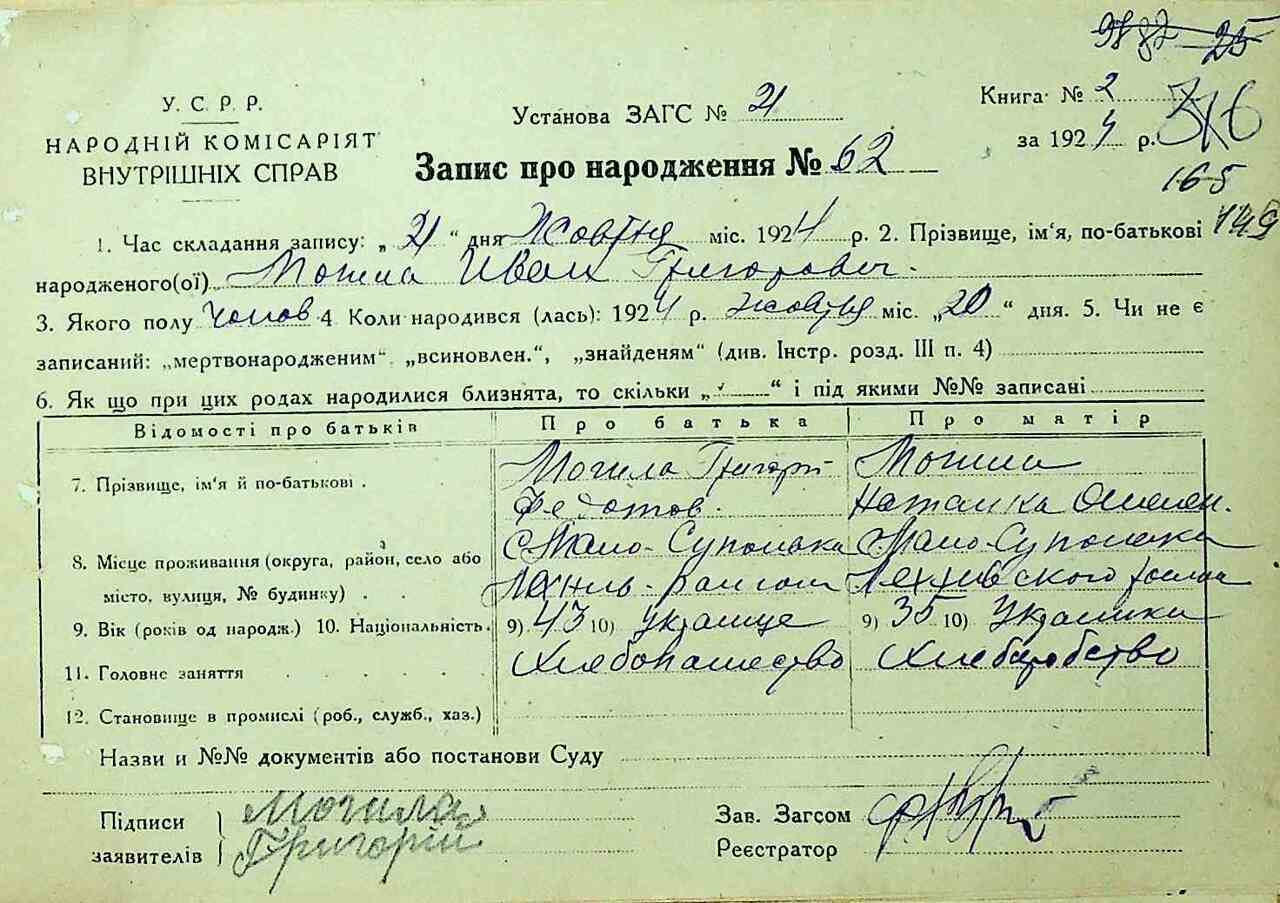 98 82 25
У. С. Р. Р.
НАРОДНІЙ КОМІСАРІЯТ
ВНУТРІШНІХ СПРАВ
Установа ЗАГС № 21
Книга № 2
за 1924 р. 316
Запис про народження № 62
165
149
1. Час складання запису: „ 21 “ дня Жовтня міс. 1924 р. 2. Прізвище, ім'я, по-батькові
народженого(ої) Могила Иван Григорович.
3. Якого полу чолов 4 Коли народився (лась): 1924 р. жовтня міс. „20“ дня. 5. Чи не є
записаний: „мертвонародженим“, „всиновлен.“, „знайденям“ (див. Інстр. розд. III п. 4)
6. Як що при цих родах народилися близнята, то скільки „ “ і під якими №№ записані
Відомості про батьків Про батька Про матір
7. Прізвище, ім'я й по-батькові . Могила Григорій Могила
Федотов. Наталка Омелен.
8. Місце проживання (округа, район, село або С Мало-Суполовка С. Мало-Суполовка
місто, вулиця, № будинку) . .
9. Вік (років од народж.) 10. Національність. 9) 43 10) украинце 9) 35 10) Украинка
11. Головне заняття . . . . . Хлебопашество Хлеборобство
12. Становище в промислі (роб., служб., хаз.)
Назви и №№ документів або постанови Суду
Підписи заявителів Могила Григорій
Зав. Загсом
Реєстратор